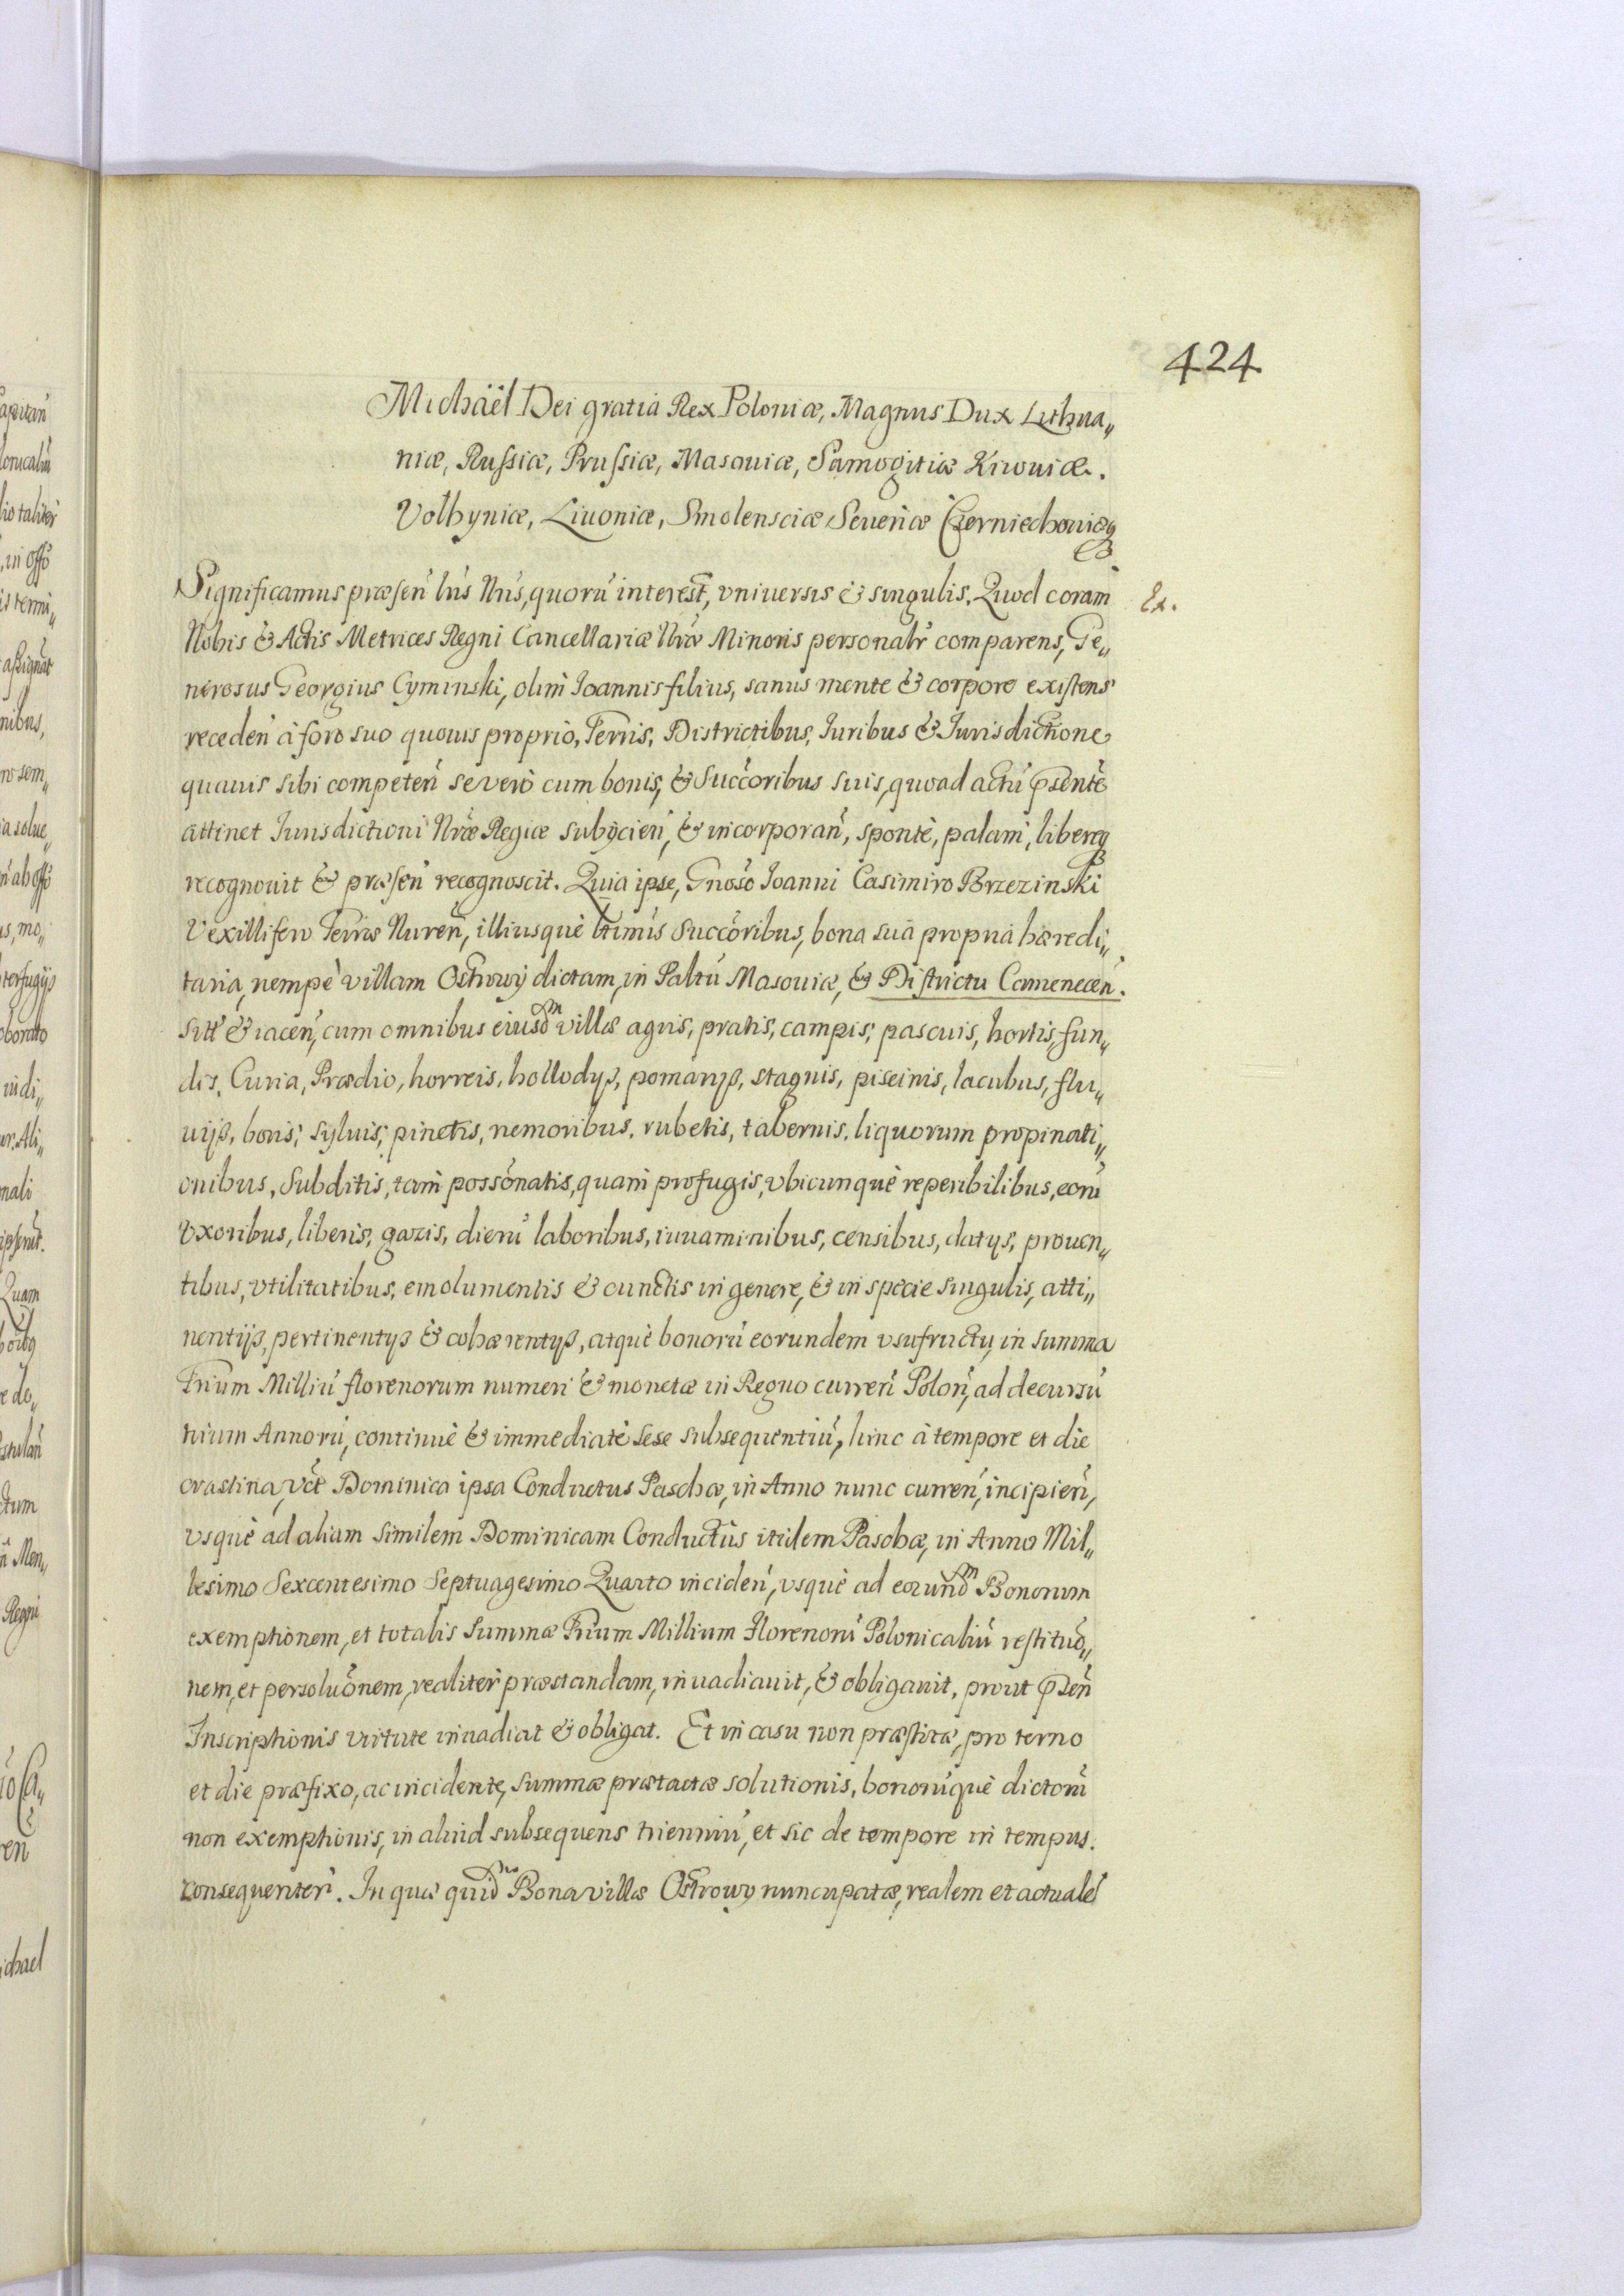 424
Michäel Dei gratia Rex Poloniæ, Magnus Dux Lithua„
niæ, Russiæ, Prussiæ, Masouiæ, Samogitiæ Kiiouiæ.
Volhyniæ, Liuoniæ, Smolensciæ Seueriæ Czerniechouiæq
Significamus præsen̄ lris Nris, quorū interest, vniuersis & singulis. Quod coram
Ex.
Nobis & Actis Metrices Regni Cancellariæ Nræ Minoris personalr̄ comparens, Ge„
nerosus Georgius Cyminski, olim Ioannis filius, sanus mente & corpore existens
receden̄ à foro suo quouis proprio, Terris, Districtibus, Iuribus & Iurisdictione
quauis sibi competen̄ se verò cum bonis, & Succ̄oribus suis, quoad actū p̄sentē
attinet Iurisdictioni Nr̄æ Regiæ subijcien̄, & incorporan̄, spontè, palam, libereq
recognouit & præsen̄ recognoscit. Quia ipse, Gn̄oso Ioanni Casimiro Brzezinski
Vexillifero Terræ Nuren̄, illiusquè ltīmis Succ̄oribus, bona sua propria hæredi„
taria, nempè villam Ostrowÿ dictam, in Paltū Masouiæ, & Districtu Camenecen̄.
sitt̄ & iacen̄, cum omnibus eiusdm villæ agris, pratis, campis, pascuis, hortis, fun„
dis, Curia, Prædio, horreis, hollodijs, pomarijs, stagnis, piscinis, lacubus, flu„
uijs, boris, syluis, pinetis, nemoribus, rubetis, tabernis, liquorum propinati„
onibus, Subditis, tam possōnatis, quam profugis, vbicunquè reperibilibus, eorū
Vxoribus, liberis, gazis, dierū laboribus, iuuaminibus, censibus, datijs, prouen„
tibus, vtilitatibus, emolumentis & cunctis in genere, & in specie singulis, atti„
nentijs, pertinentijs & cohærentijs, atquè bonorū eorundem vsufructu, in summa
Trium Milliū florenorum numeri & monetæ in Regno curren̄ Polon̄, ad decursū
trium Annorū, continuè & immediatè sese subsequentiū, hinc à tempore et die
crastina, vct̄ Dominica ipsa Conductus Paschæ, in Anno nunc curren̄, incipien̄,
vsquè ad aliam similem Dominicam Conductus itidem Paschæ, in Anno Mil„
lesimo Sexcentesimo Septuagesimo Quarto inciden̄, vsquè ad eorundm Bonorum
exemptionem, et totalis Summæ Trium Millium Florenorū Polonicaliū restituō„
nem, et persoluōnem, realiter præstandam, inuadiauit, & obligauit, prout p̄sen̄
Inscriptionis virtute inuadiat & obligat. Et in casu non præstitæ, pro terno
et die præfixo, ac incidente, summæ prætactæ solutionis, bonorūquè dictorū
non exemptionis, in aliud subsequens trienniū, et sic de tempore in tempus.
consequenter. In quæ quidm Bona villæ Ostrowy nuncupatæ, realem et actualē